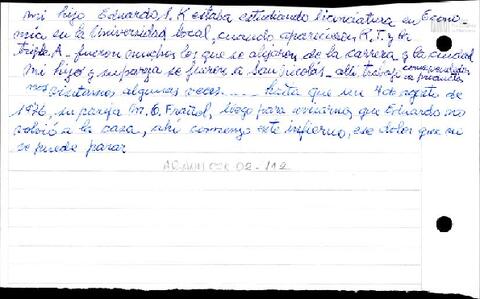 mi hijo Eduardo, S. K estaba estudiando licenciatura en Econo-
mía en la Universidad local, cuando aparecieron, R. T. y la
triple A - fueron muchos los que se alejaron de la carrera y la ciudad
mi hijo y su pareja se fueron a San Nicolás, allí trabajó como
de
nos visitamos algunas veces..... Hasta que un 4 de agosto de
1976, su pareja M. C. llegó para avisarnos, que Eduardo no
volvió a la casa, ahí comenzó este infierno, ese dolor que no
se puede parar
02-112